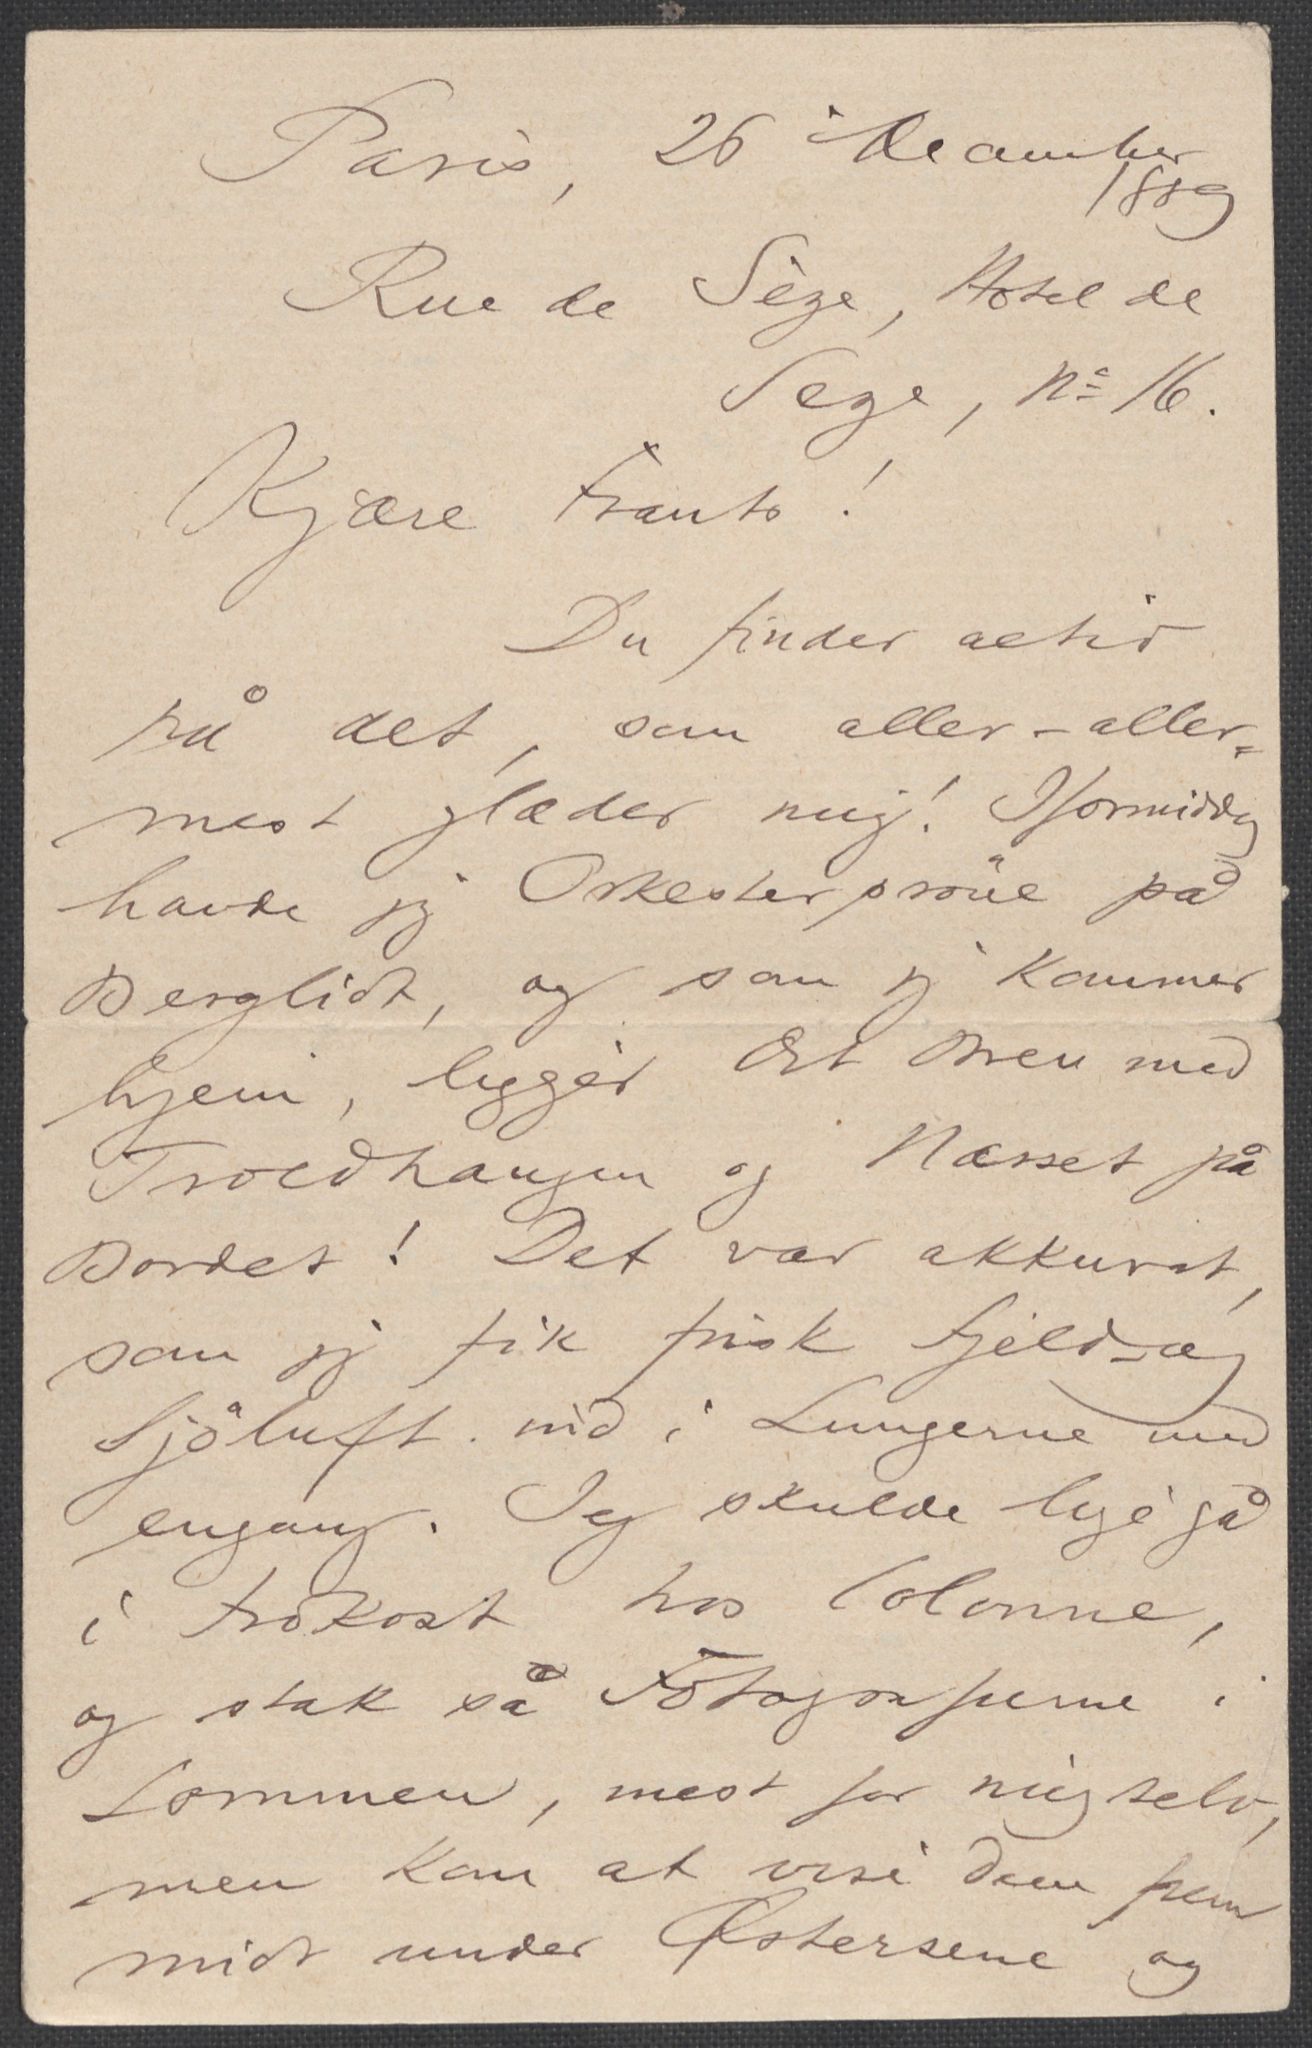 Paris, 26 December
1889
Rue de Sèze, Hotel de
Seze, No 16.
Kjære Frants!
Du finder altid
på det, som aller-aller=
mest glæder mig! Iformiddag
havde jeg Orkesterpröve på
Bergliot, og som jeg kommer
hjem, ligger Dit Brev med
Troldhaugen og Næsset på
Bordet! Det var akkurat,
som jeg fik frisk Fjeld- og
Sjöluft ind i Lungerne med
engang. Jeg skulde lige gå
i Frokost hos Colonne,
og stak så Fotografierne i
Lommen, mest for migselv,
men kom at vise dem frem
midt under Østersene og